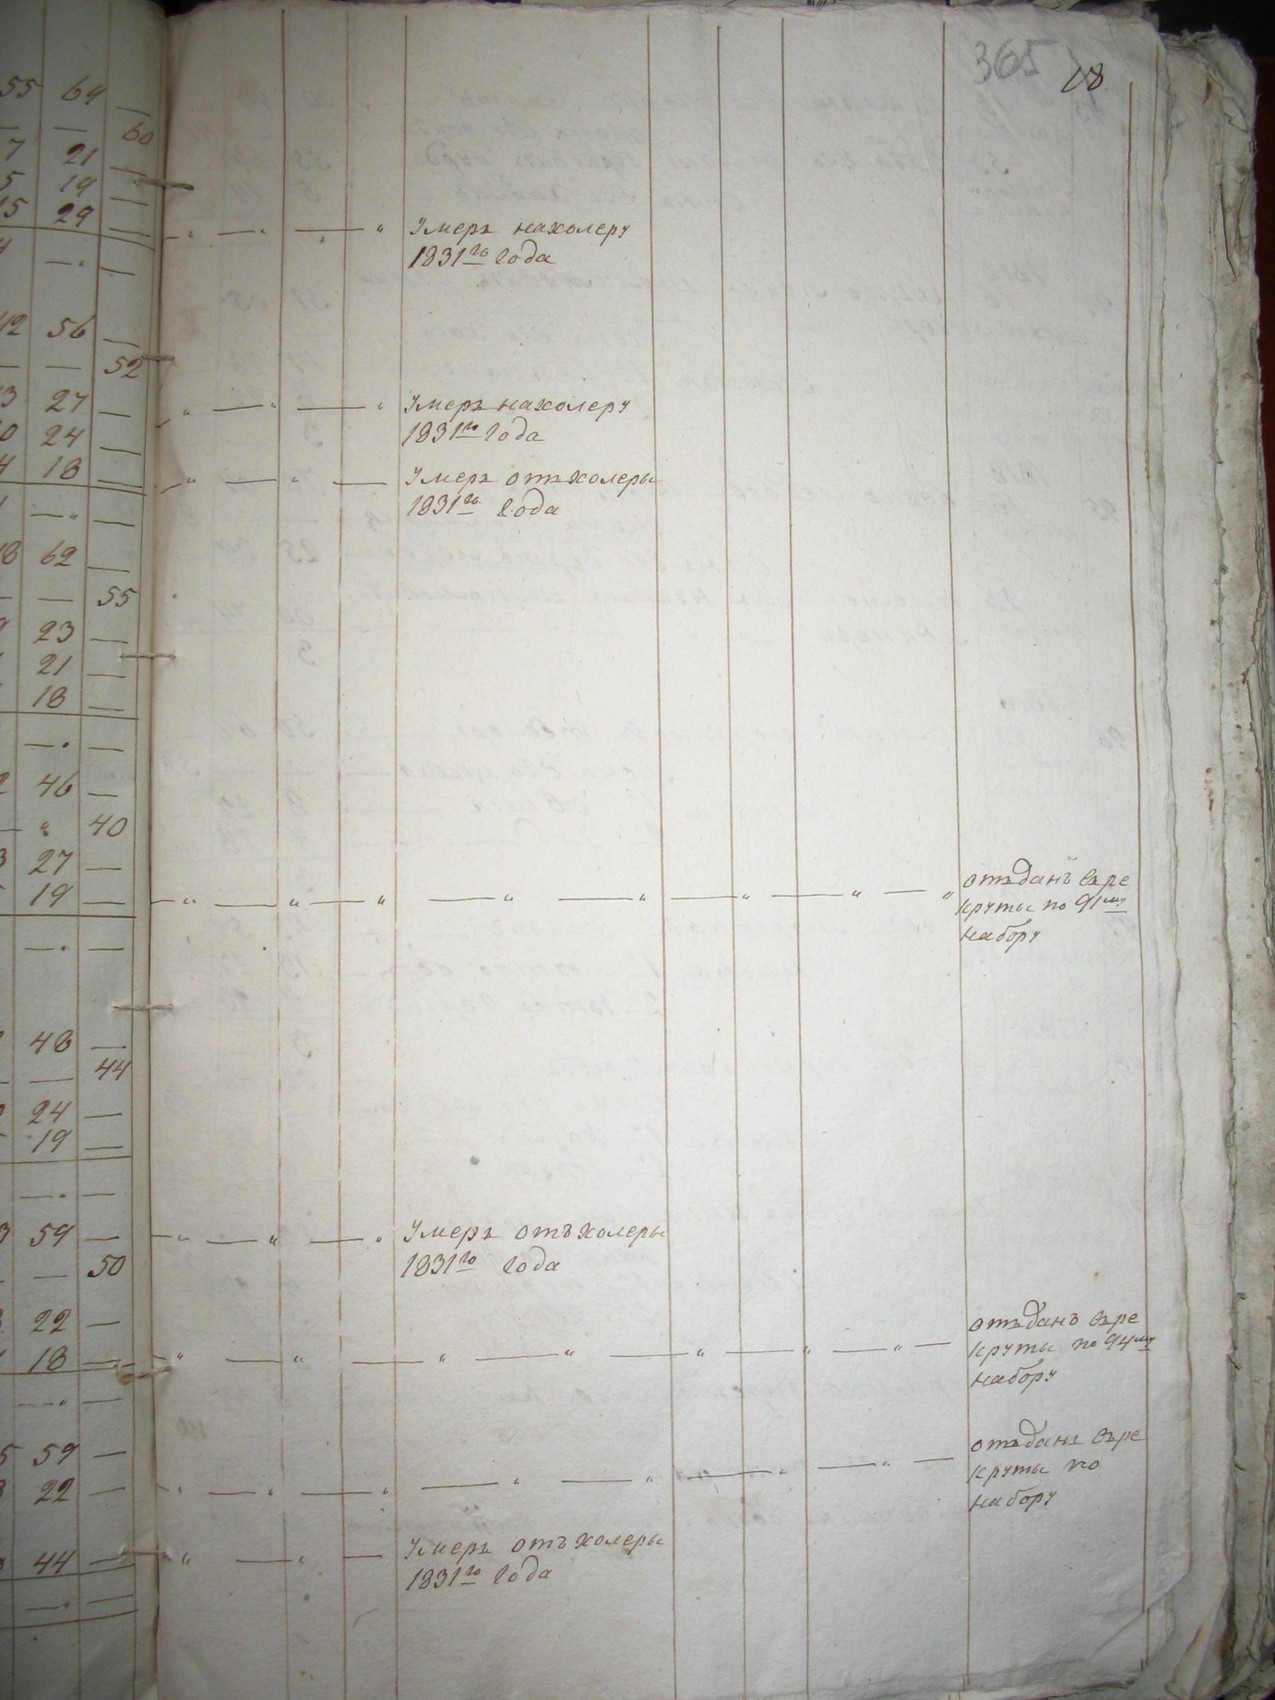 365
18
55 64 —
— — 60
7 21 —
5 19 —
15 29 —
Умеръ нахолеру
1831го года
42 56 —
— — 52
3 27 —
0 24 —
4 18 —
Умеръ нахолеру
1831го года
Умеръ отъ холеры
1831го года
18 62 —
— — 55
23 —
21 —
18 —
46 —
— " 40
27 —
19 —
отъданъ въре
круты по 91му
набору
48 —
— — 44
24 —
19 —
59 —
— 50
22 —
18 —
Умеръ отъ холеры
1831го года
отъданъ въре
круты по 94му
набору
5 59 —
22 —
44 —
отъданъ въре
круты по
набору
Умеръ отъ холеры
1831го года